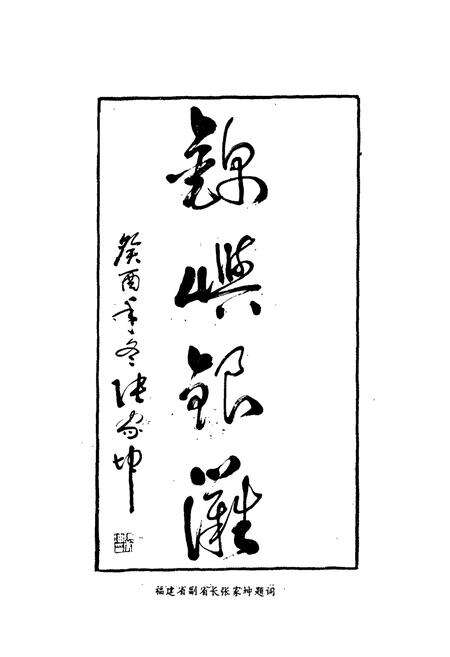 錦嶼銀灘
癸酉年冬张家坤
福建省副省长张家坤题词